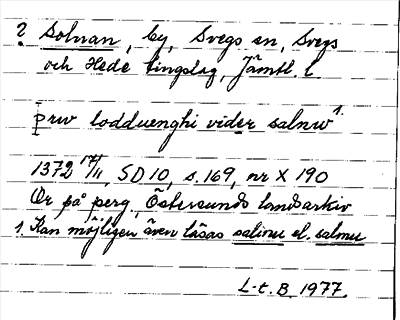 ? Solnan, by, Svegs sn, Svegs
och Hede tingslag, Jämtl. l.
þrw lodduenghi vider salnw 1.
1372 17/11, SD 10, s. 169, nr X 190
Or på perg, Östersunds landsarkiv
1. Kan möjligen även läsas salinu el. salmu
L-t. B. 1977.